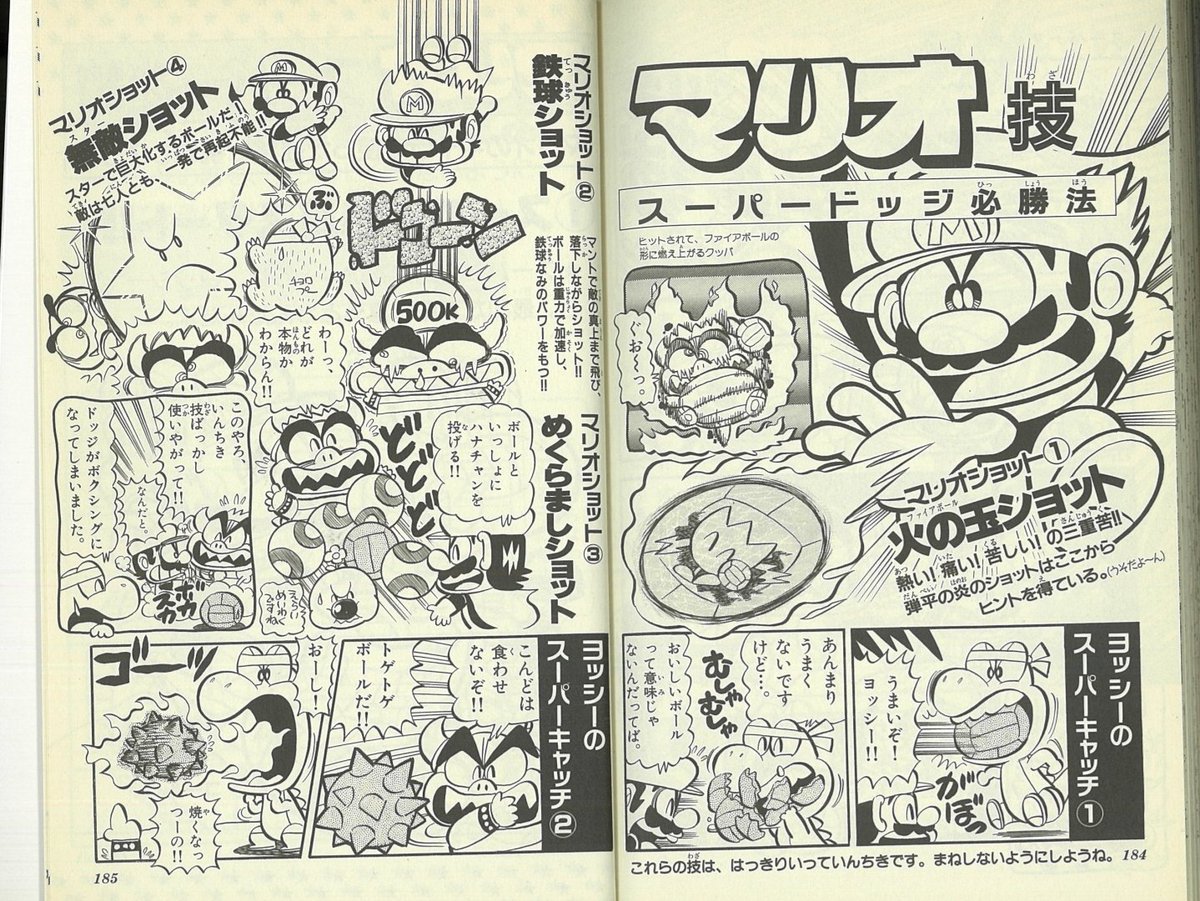 マリオ技
スーパードッジ必勝法
ヒットされて、ファイアボールの
形に燃え上がるクッパ
ぐお〜っ。
マリオショット①
火の玉ショット
熱い!痛い!苦しい!の三重苦!!
弾平の炎のショットはここから
ヒントを得ている。(うそだよーん)
ヨッシーの
スーパーキャッチ①
うまいぞ!
ヨッシー!!
がぼっ
あんまり
うまく
ないです
けど…。
むしゃ
むしゃ
おいしいボール
って意味じゃ
ないんだってば。
これらの技は、はっきりいっていんちきです。まねしないようにしようね。
184
マリオショット②
鉄球ショット
マントで敵の真上まで飛び、
落下しながらショット!!
ボールは重力で加速し、
鉄球なみのパワーをもつ!!
M
ドゴーン
500K
マリオショット④
無敵ショット
スターで巨大化するボールだ!
敵は七人とも、一発で再起不能!!
ぶ
チョロ
マリオショット③
めくらましショット
ボールと
いっしょに
ハナチャンを
投げる!!
どどどど
わーっ、
どれが
本物か
わからん!!
えらい
めいわく
ですね
このやろ、
いんちき
技ばっかし
使いやがって!!
なんだと。
ボカ
スカ
ドッジがボクシングに
なってしまいました。
ヨッシーの
スーパーキャッチ②
こんどは
食わせ
ないぞ!!
トゲトゲ
ボールだ!!
おーし!
ゴーッ
焼くなっ
つーの!!
185